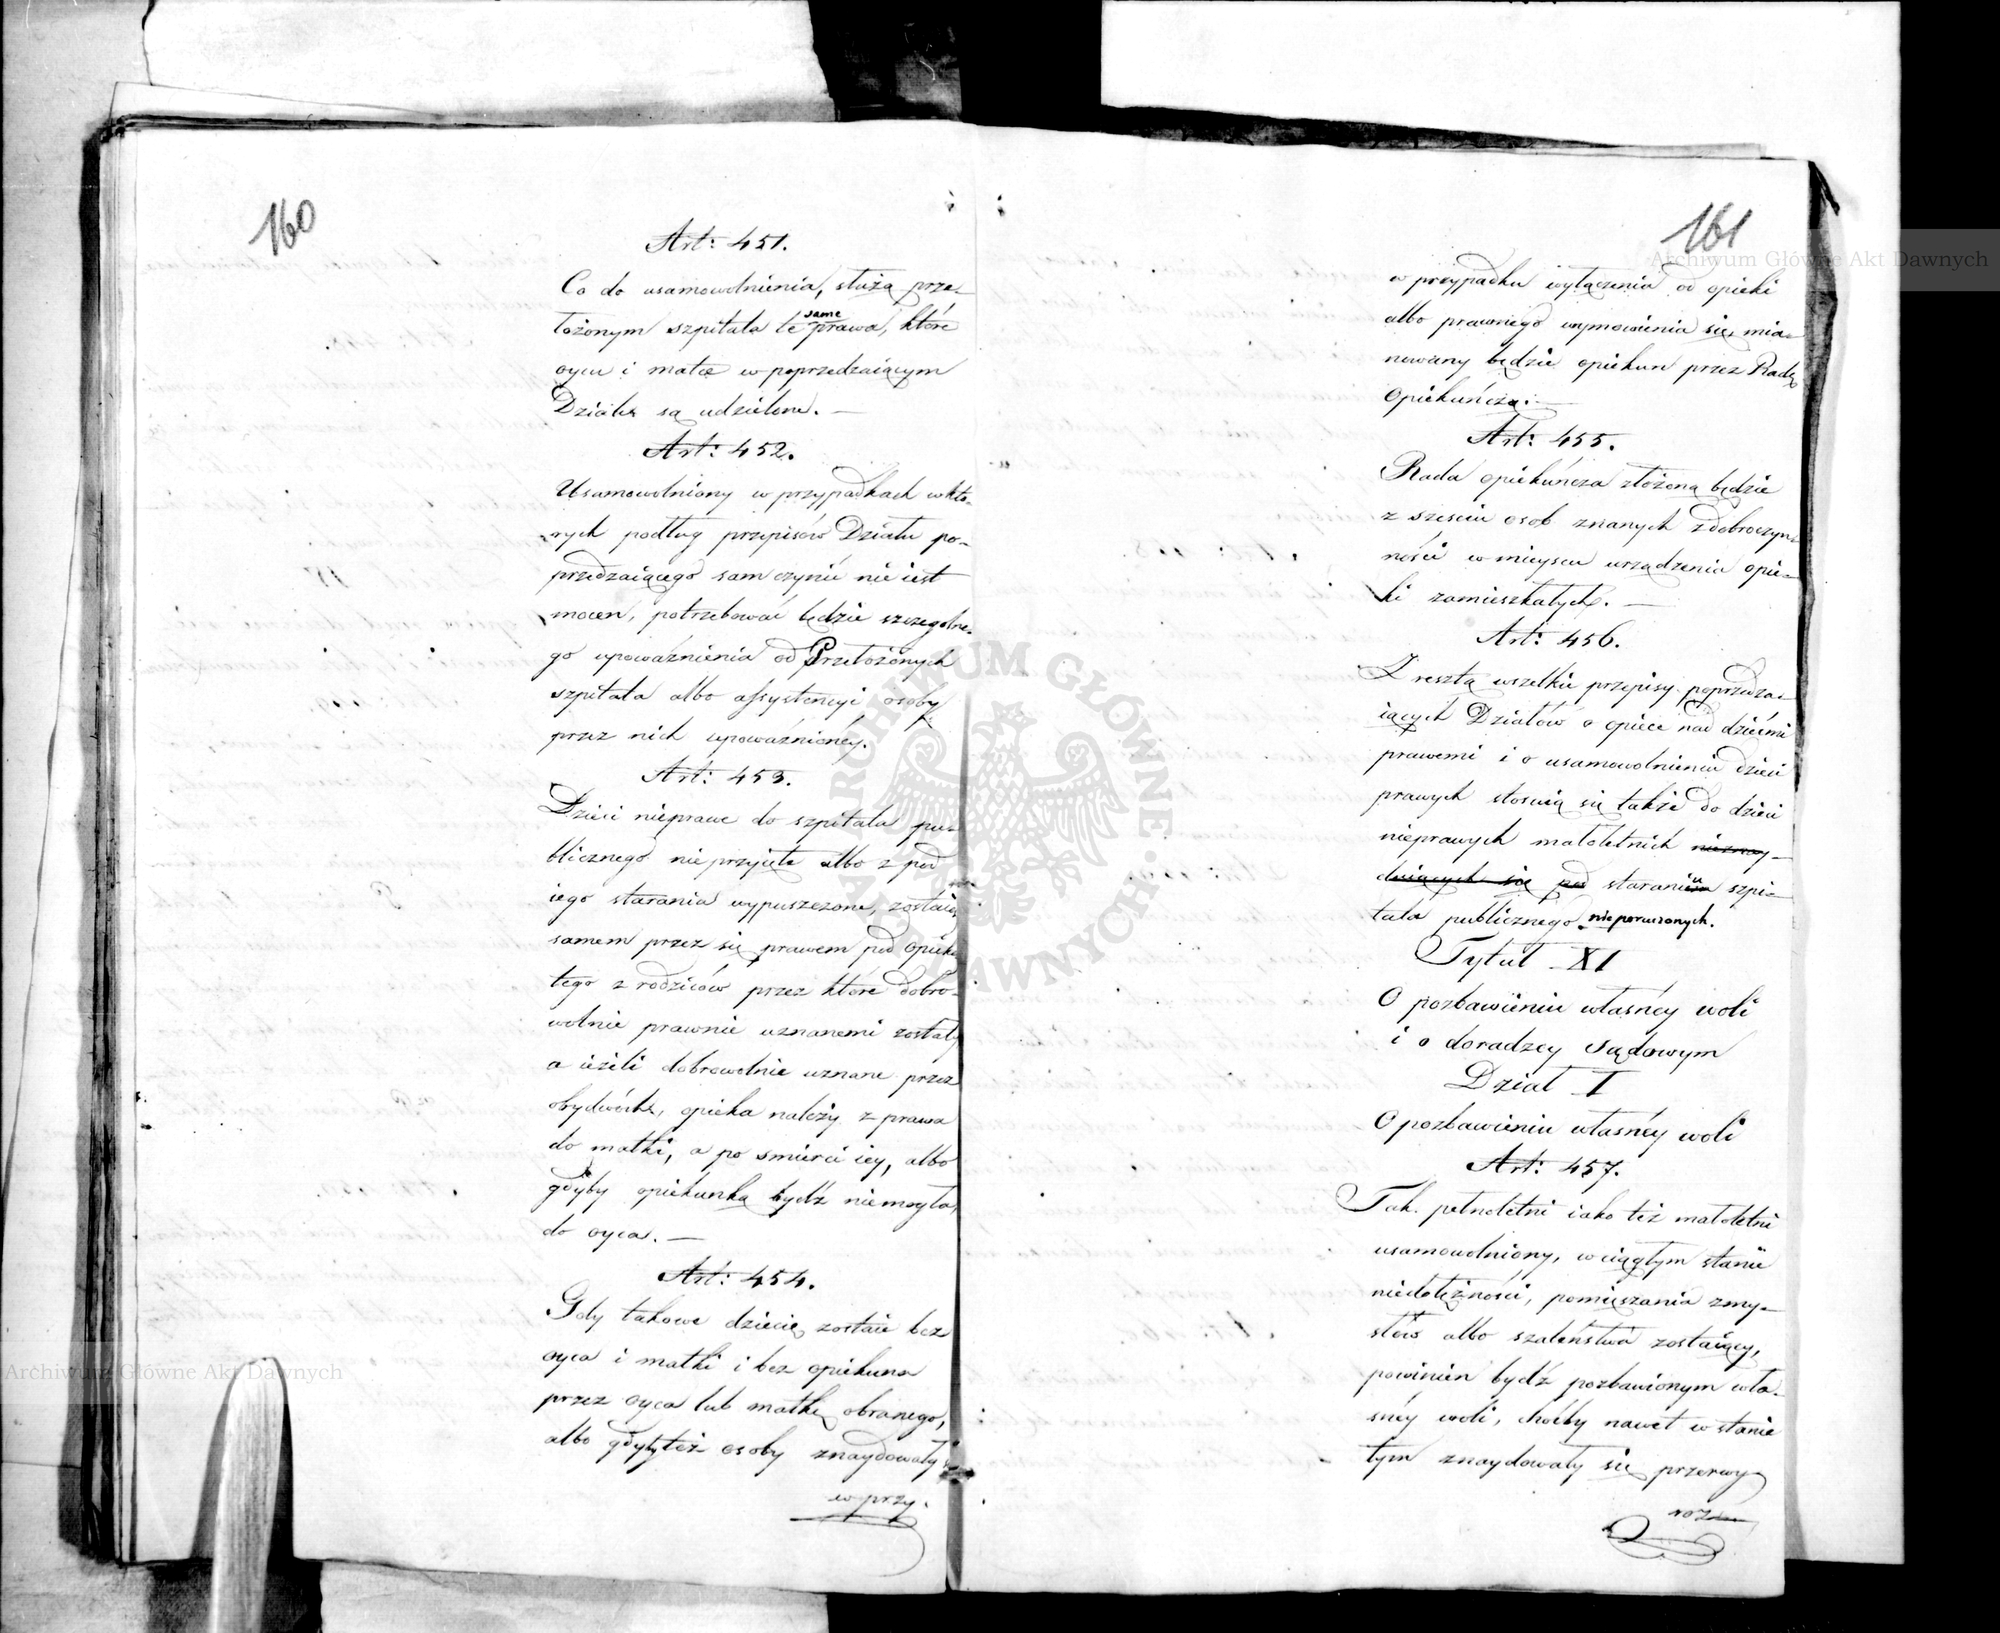 160
Art: 451.
Co do usamowolnienia, służą prze-
łożonym szpitala te same prawa, które
oycu i matce w poprzedzaiącym
Dziale są udzielone. —
Art: 452.
Usamowolniony w przypadkach w któ-
rych podług przepisów Działu po-
przedzaiącego sam czynić nie iest
mocen, potrzebować będzie szczególne-
go upoważnienia od Przełożonych
szpitala albo assystencyi osoby
przez nich upoważnionéy.
Art: 453.
Dzieci nieprawe do szpitala pu-
blicznego nieprzyięte albo z pod
iego starania wypuszczone, zostaią
samem przez się prawem pod opieką
tego z rodziców przez które dobro-
wolnie prawnie uznanemi zostały
a ieżeli dobrowolnie uznane przez
obydwóch, opieka należy z prawa
do matki, a po śmierci iey, albo
gdyby opiekunką bydź niemogła,
do oyca. —
Art: 454.
Gdy takowe dziecię zostaie bez
oyca i matki i bez opiekuna
przez oyca lub matkę obranego,
albo gdyby też osoby znaydowały s
w przy.
161
w przypadku wyłączenia od opieki
albo prawnego wymowienia się, mia-
nowany będzie opiekun przez Radę
Opiekuńczą. —
Art: 455.
Rada opiekuńcza złożoną będzie
z szesciu osob znanych z dobroczyn-
ności w mieyscu urządzenia opie-
ki zamieszkałych. —
Art: 456.
Z resztą wszelkie przepisy poprzedza-
iących Działów o opiece nad dziećmi
prawemi i o usamowolnieniu dzieci
prawych stosuią się także do dzieci
nieprawych małoletnich nieznay-
duiących się pod staraniu szpi-
tala publicznego nie poruczonych.
Tytuł XI
O pozbawieniu własnéy woli
i o doradzcy Sądowym
Dział I
O pozbawieniu własnéy woli
Art: 457.
Tak pełnoletni iako też małoletni
usamowolniony, w ciągłym stanie
niedołężności, pomięszania zmy-
słów albo szaleństwa zostaiący,
powinien bydź pozbawionym wła-
snéy woli, choćby nawet w stanie
tym znaydowały się przerwy
roz
Archiwum Główne Akt Dawnych
Archiwum Główne Akt Dawnych
ARCHIWUM GŁÓWNE AKT DAWNYCH